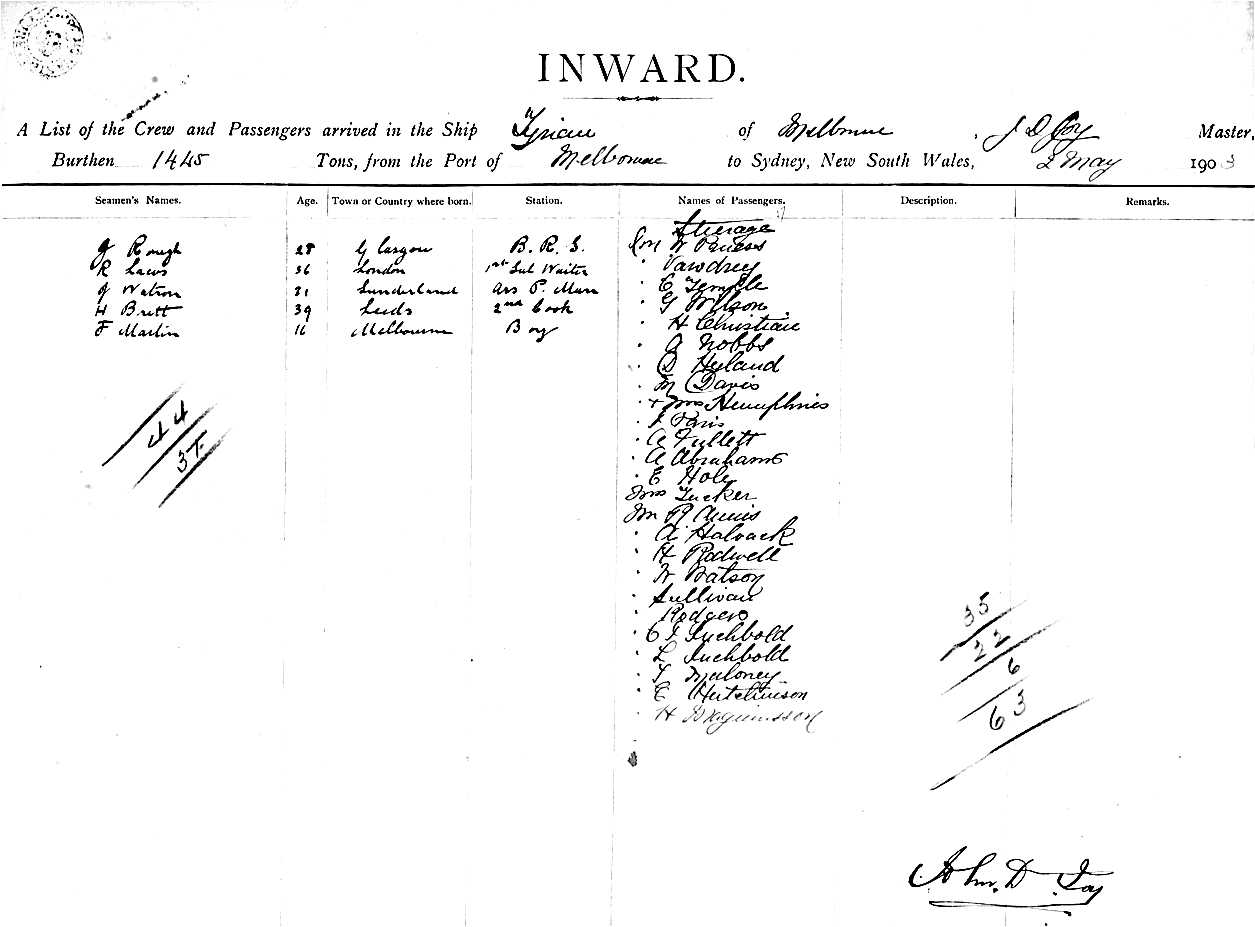 INWARD.
A List of the Crew and Passengers arrived in the Ship Tyrian of Melbourne, J D Joy Master,
Burthen 1445 Tons, from the Port of Melbourne to Sydney, New South Wales, 2 May 1903
Seamen's Names. Age. Town or Country where born. Station. Names of Passengers. Description. Remarks.
Steerage
J Rough 28 Glasgow B. R. S.
R Laws 36 London 1st Sal Waiter
J Watson 31 Sunderland Ass P. Man
H Brett 39 Leeds 2nd Cook
F Martin 16 Melbourne Boy
W
Vawdrey
E Temple
G Wilson
H Christian
A Nobbs
D Hyland
M Davis
+ Mrs Humphries
J Paris
A Fullett
A Abrahams
E Hole
Mrs Tucker
Mr R Annis
A Halvack
H Radwell
W Batson
Sullivan
Rodgers
C J Inchbold
L Inchbold
T Maloney
E Hutchinson
H
44
37
35
22
6
63
John. D. Joy